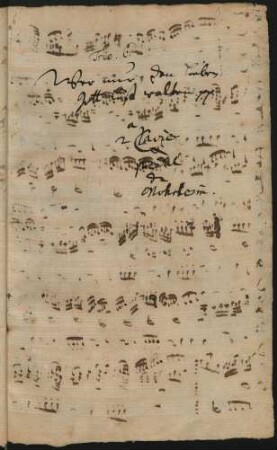 Trio.
Wer nur den lieben
Gott läst walten
a
2 Clavier
Pedal
da